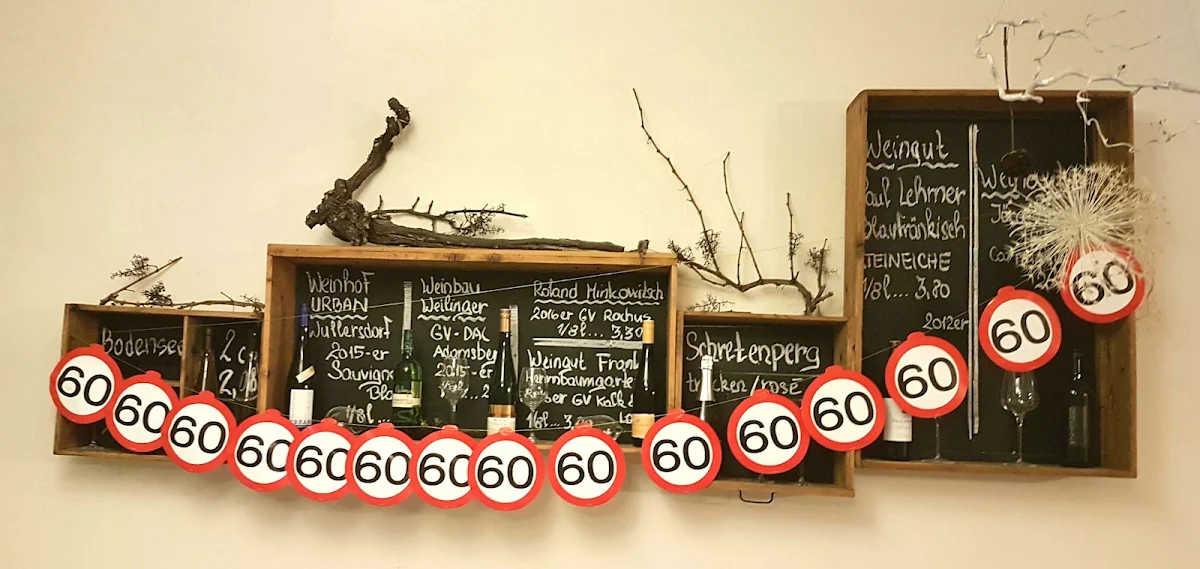 Bodensee
2 c
2,
Weinhof
URBAN
Wullersdorf
2015-er
Sauvign
Bla
1/8l
Weinbau
Weilinger
GV-DAC
Adamsbe
2015-er
Roland Minkowitsch
2016er GV Rochus
1/8l... 3,30
Weingut Frank
Herrnbaumgarte
er GV Kalk &
1/8l... 3,
Schretenperg
trocken/rosé
Weingut
aul Lehrner
Blaufränkisch
STEINEICHE
1/8l... 3,80
2012er
60
60
60
60
60
60
60
60
60
60
60
60
60
60
60